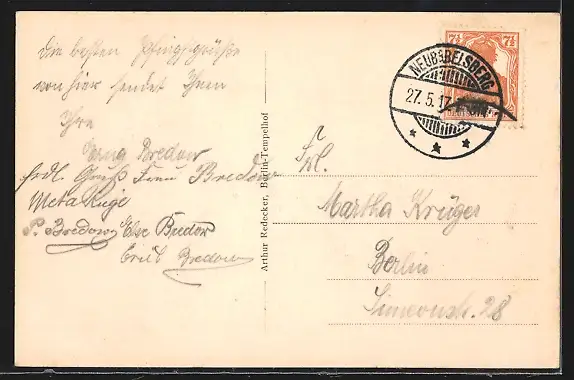 die besten Pfingstgrüße
von hier sendet Ihnen
Ihre
Erna Bredow
frdl. Gruß Frau Bredow
Meta Ruge
P. Bredow Else Bredow
Erich Bredow
Arthur Redecker, Berlin-Tempelhof
Frl.
Martha Krüger
Berlin
Simeonstr. 28
7½ 7½
NEUBABELSBERG
27.5.17